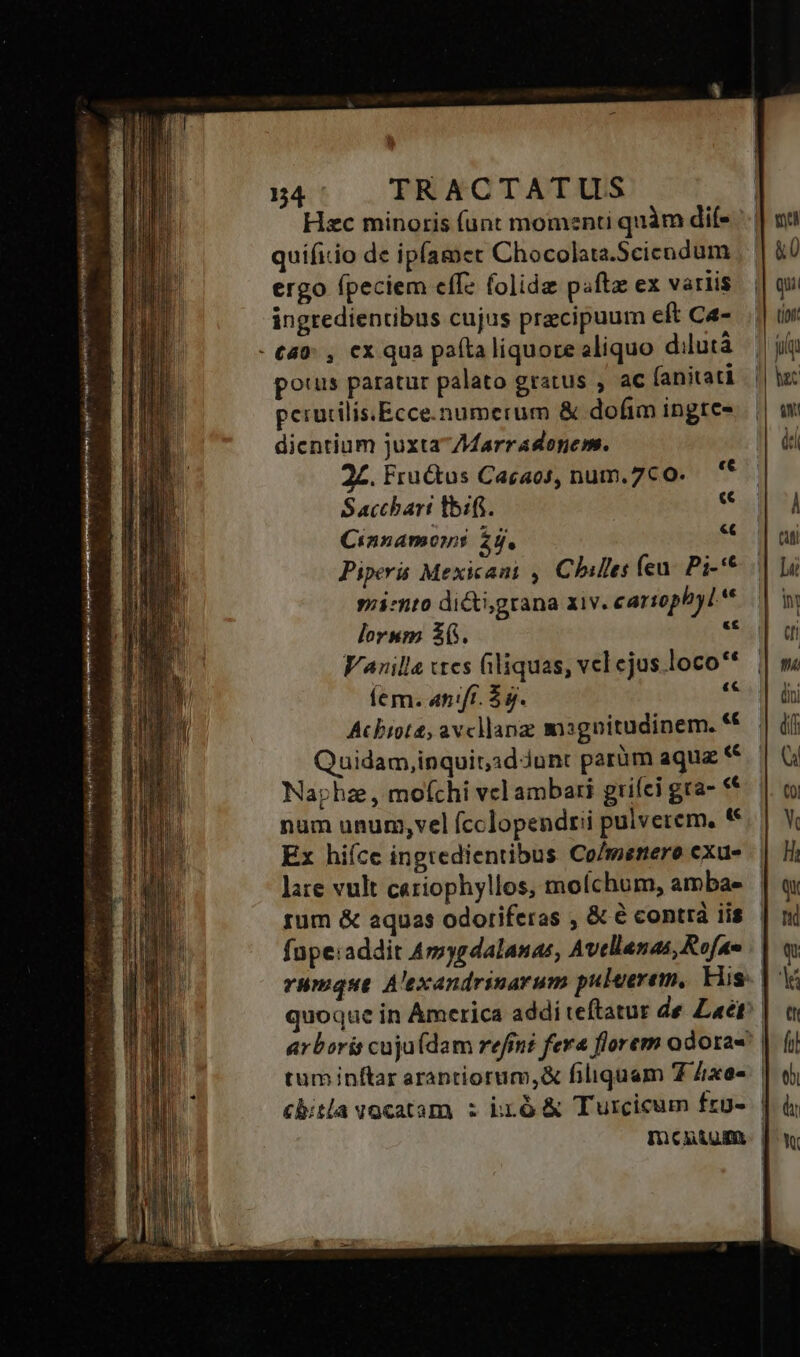 134 TRACTATUS
Hæc minoris ſunt momenti quàm diſ-
quiſitio de ipſamet Chocolata.Sciendum
ergo ſpeciem eſſe ſolidæ paſtæ ex variis
ingredientibus cujus præcipuum eſt Ca-
cao , ex qua paſta liquore aliquo dilutâ
potus paratur palato gratus , ac ſanitati
perutilis.Ecce numerum & doſim ingre-
dientium juxta Marradonem.
♃. Fructus Cacaos, num.7co. “
Sacchari ℔iß. “
Cinnamomi ℥ij. “
Piperis Mexicani , Chilles ſeu Pi- “
miento dicti,grana xiv. cariophyl “
lorum ℥ß. “
Vanillæ tres ſiliquas, vel ejus loco “
ſem. aniſi. ℥ij. “
Achiotæ, avellanæ magnitudinem. “
Quidam,inquit,addunt parùm aquæ “
Naphæ, moſchi vel ambari griſei gra- “
num unum,vel ſcolopendrii pulverem. “
Ex hiſce ingredientibus Colmenero exu-
lare vult cariophyllos, moſchum, amba-
rum & aquas odoriferas , & è contrà iis
ſuperaddit Amygdalanas, Avellanas,Roſa-
rumque Alexandrinarum pulverem. His
quoque in America addi teſtatur de Laët
arboris cujuſdam reſini feræ florem odora-
tum inſtar arantiorum,& ſiliquam Tlixo-
chitla vocatam : imò & Turcicum fru-
mentum